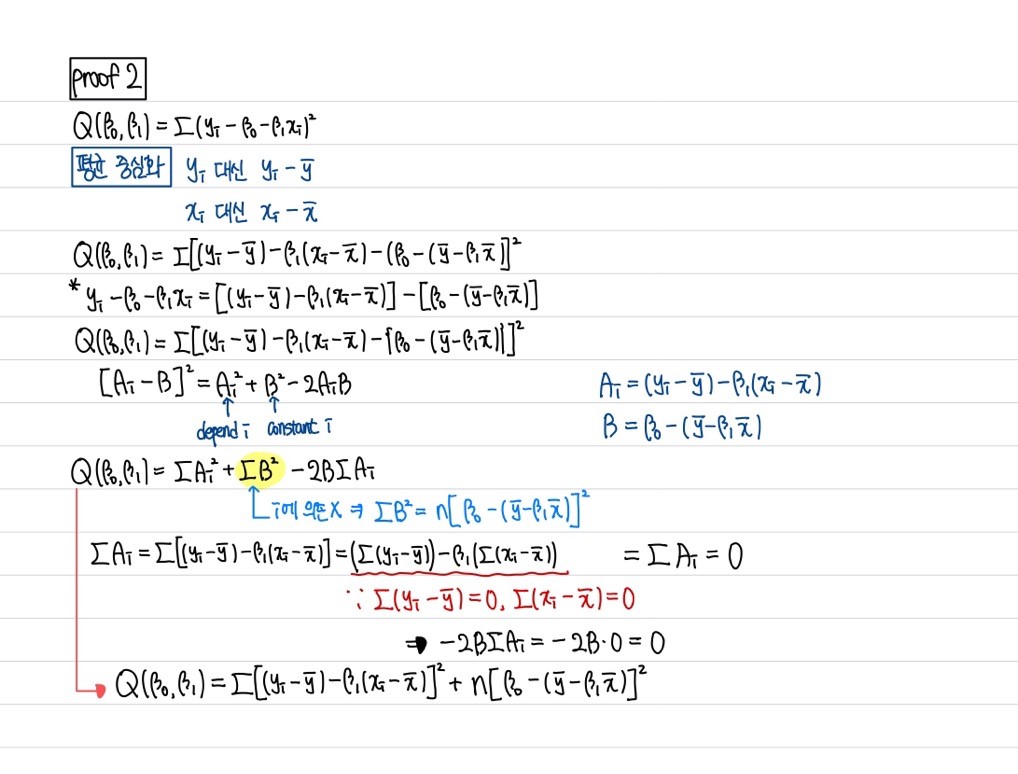 proof 2
Q(β₀,β₁) = Σ(yᵢ - β₀ - β₁xᵢ)²
평균 중심화 yᵢ 대신 yᵢ - ȳ
xᵢ 대신 xᵢ - x̄
Q(β₀,β₁) = Σ[(yᵢ - ȳ) - β₁(xᵢ - x̄) - (β₀ - (ȳ - β₁x̄)]²
* yᵢ - β₀ - β₁xᵢ = [(yᵢ - ȳ) - β₁(xᵢ - x̄)] - [β₀ - (ȳ - β₁x̄)]
Q(β₀,β₁) = Σ[(yᵢ - ȳ) - β₁(xᵢ - x̄) - {β₀ - (ȳ - β₁x̄)}]²
[Aᵢ - B]² = Aᵢ² + B² - 2AᵢB
Aᵢ = (yᵢ - ȳ) - β₁(xᵢ - x̄)
depend i constant i
B = β₀ - (ȳ - β₁x̄)
Q(β₀,β₁) = ΣAᵢ² + ΣB² - 2BΣAᵢ
i에 의존 X ⇒ ΣB² = n[β₀ - (ȳ - β₁x̄)]²
ΣAᵢ = Σ[(yᵢ - ȳ) - β₁(xᵢ - x̄)] = (Σ(yᵢ - ȳ)) - β₁(Σ(xᵢ - x̄)) = ΣAᵢ = 0
∵ Σ(yᵢ - ȳ) = 0, Σ(xᵢ - x̄) = 0
⇒ -2BΣAᵢ = -2B·0 = 0
Q(β₀,β₁) = Σ[(yᵢ - ȳ) - β₁(xᵢ - x̄)]² + n[β₀ - (ȳ - β₁x̄)]²